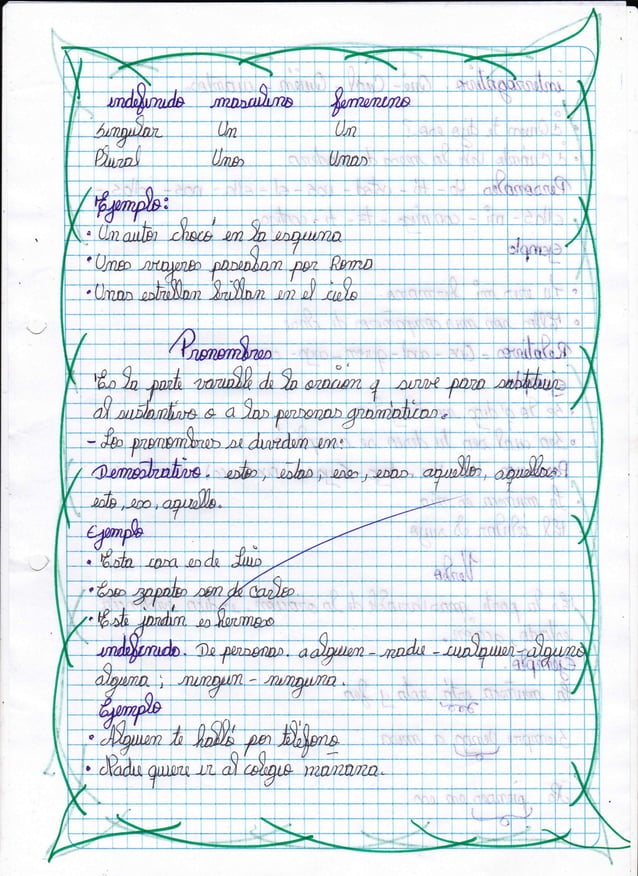 indefinido masculino femenino
Singular Un Un
Plural Unos Unas
Ejemplo:
• Un autor chocó en la esquina
• Unos viajeros paseaban por Roma
• Unas estrellan brillan en el cielo
Pronombres
Es la parte variable de la oración q sirve para sustituir
al sustantivo o a las personas gramáticas.
- Los pronombres se dividen en:
Demostrativo. estos, estas, eses, esas. aquellos, aquellas
esto, eso, aquello.
Ejemplo
• Esta casa es de Luis
• Esos zapatos son de Carlos.
• Este jardín es hermoso
indefinido. De personas. a alguien - nadie - cualquier - alguno
alguna ; ningun - ninguna.
Ejemplo
• Alguien te habló por teléfono
• Nadie quiere ir al colegio mañana.